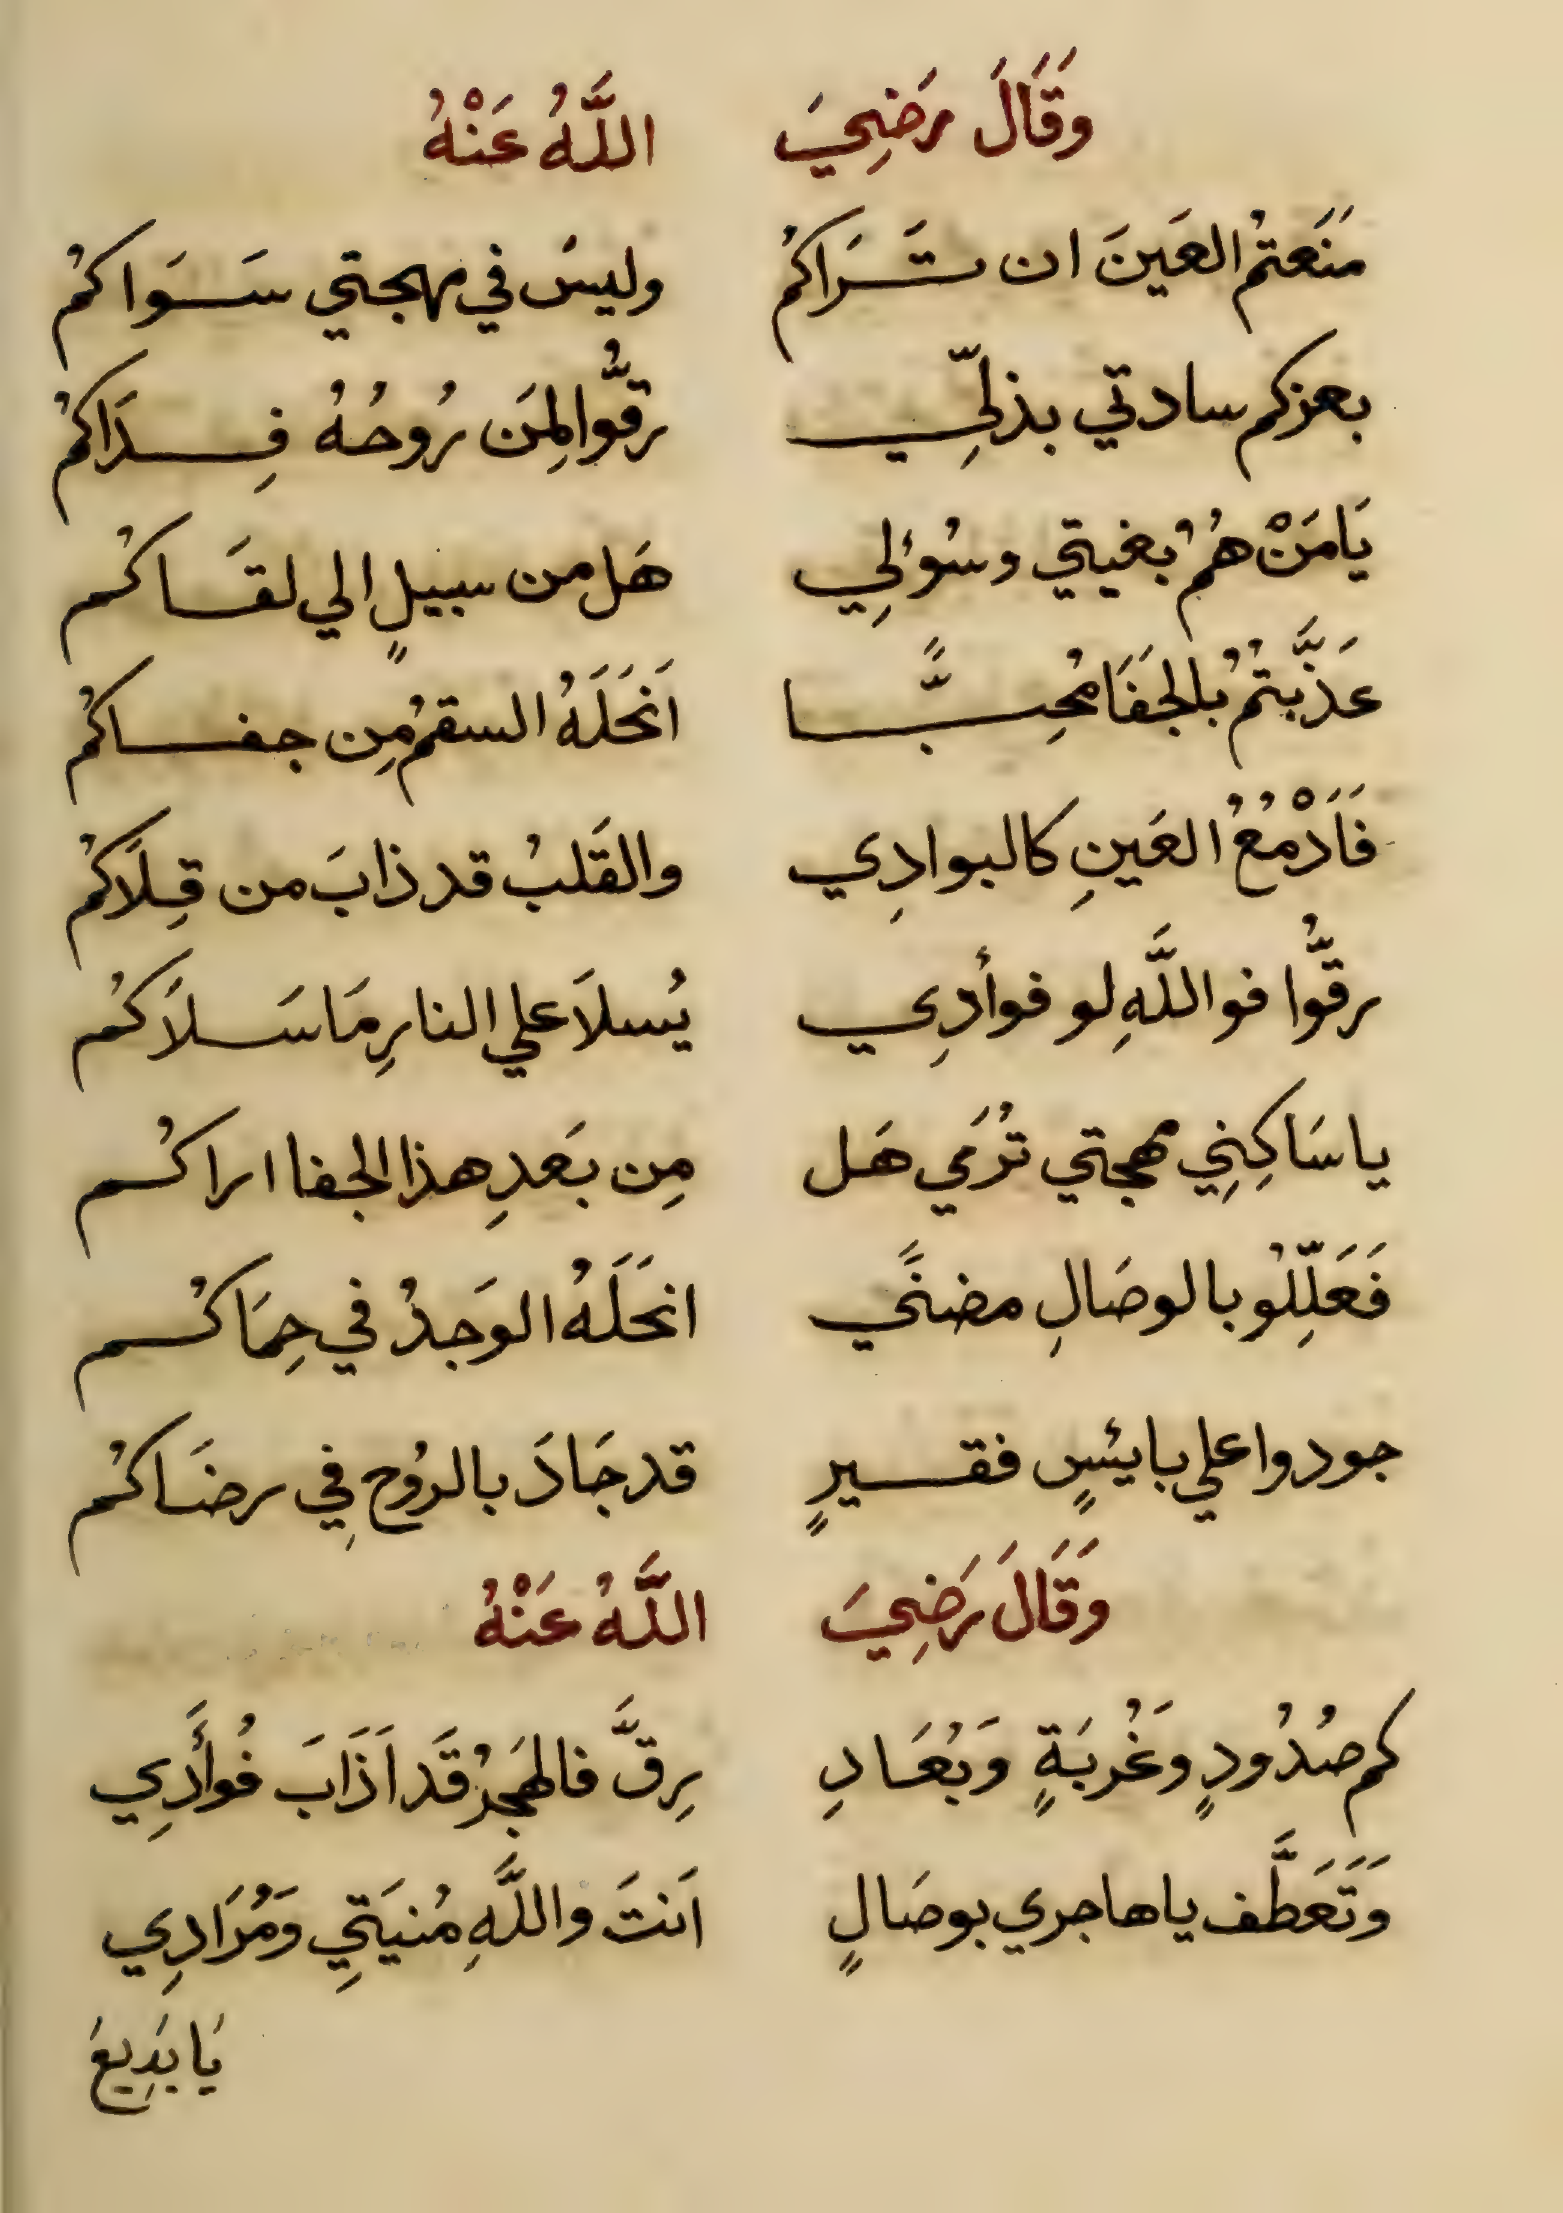 وَقَالَ رَضِيَ اللَّهُ عَنْهُ
مَنَعتمُ العَينَ ان تَرَاكمُ وليسَ في مهجتي سَوَاكمُ
بعزكم سادتي بذلِّي رقُّوا لِمَن رُوحُهُ فِدَاكمُ
يَامَنْ هُمُ بغيتي وسُؤلِي هَل من سبيلٍ الي لقَاكُم
عَذَّبتمُ بالجَفَا مُحِبًّا اَنحَلَهُ السقمُ مِن جفاكمُ
فَاَدْمُعُ العَينِ كالبوادِي والقَلبُ قد ذابَ من قِلَاكمُ
رقُّوا فواللَّهِ لو فوأدِي يُسلاَ علي النارِ مَا سَلاَكُم
يا سَاكِنِي مهجتي تُرَمي هَل مِن بَعَدِ هذا الجفا اراكُم
فَعَلِّلُو بالوصَالِ مضنًي انحَلَهُ الوَجدُ في حِمَاكُم
جودوا علي بايئسٍ فقيرٍ قد جَادَ بالرُوحِ فِي رضَاكُم
وَقَالَ رَضِيَ اللَّهُ عَنْهُ
كم صُدُودٍ وغُربَةٍ وَبُعَادِ رِقَّ فالهَجرُ قَد اَذَابَ فُوأَدِي
وَتَعَطَّف ياهاجري بوصَالٍ اَنتَ واللَّهِ مُنيَتِي وَمُرَادِي
يَا بَدِيعَ